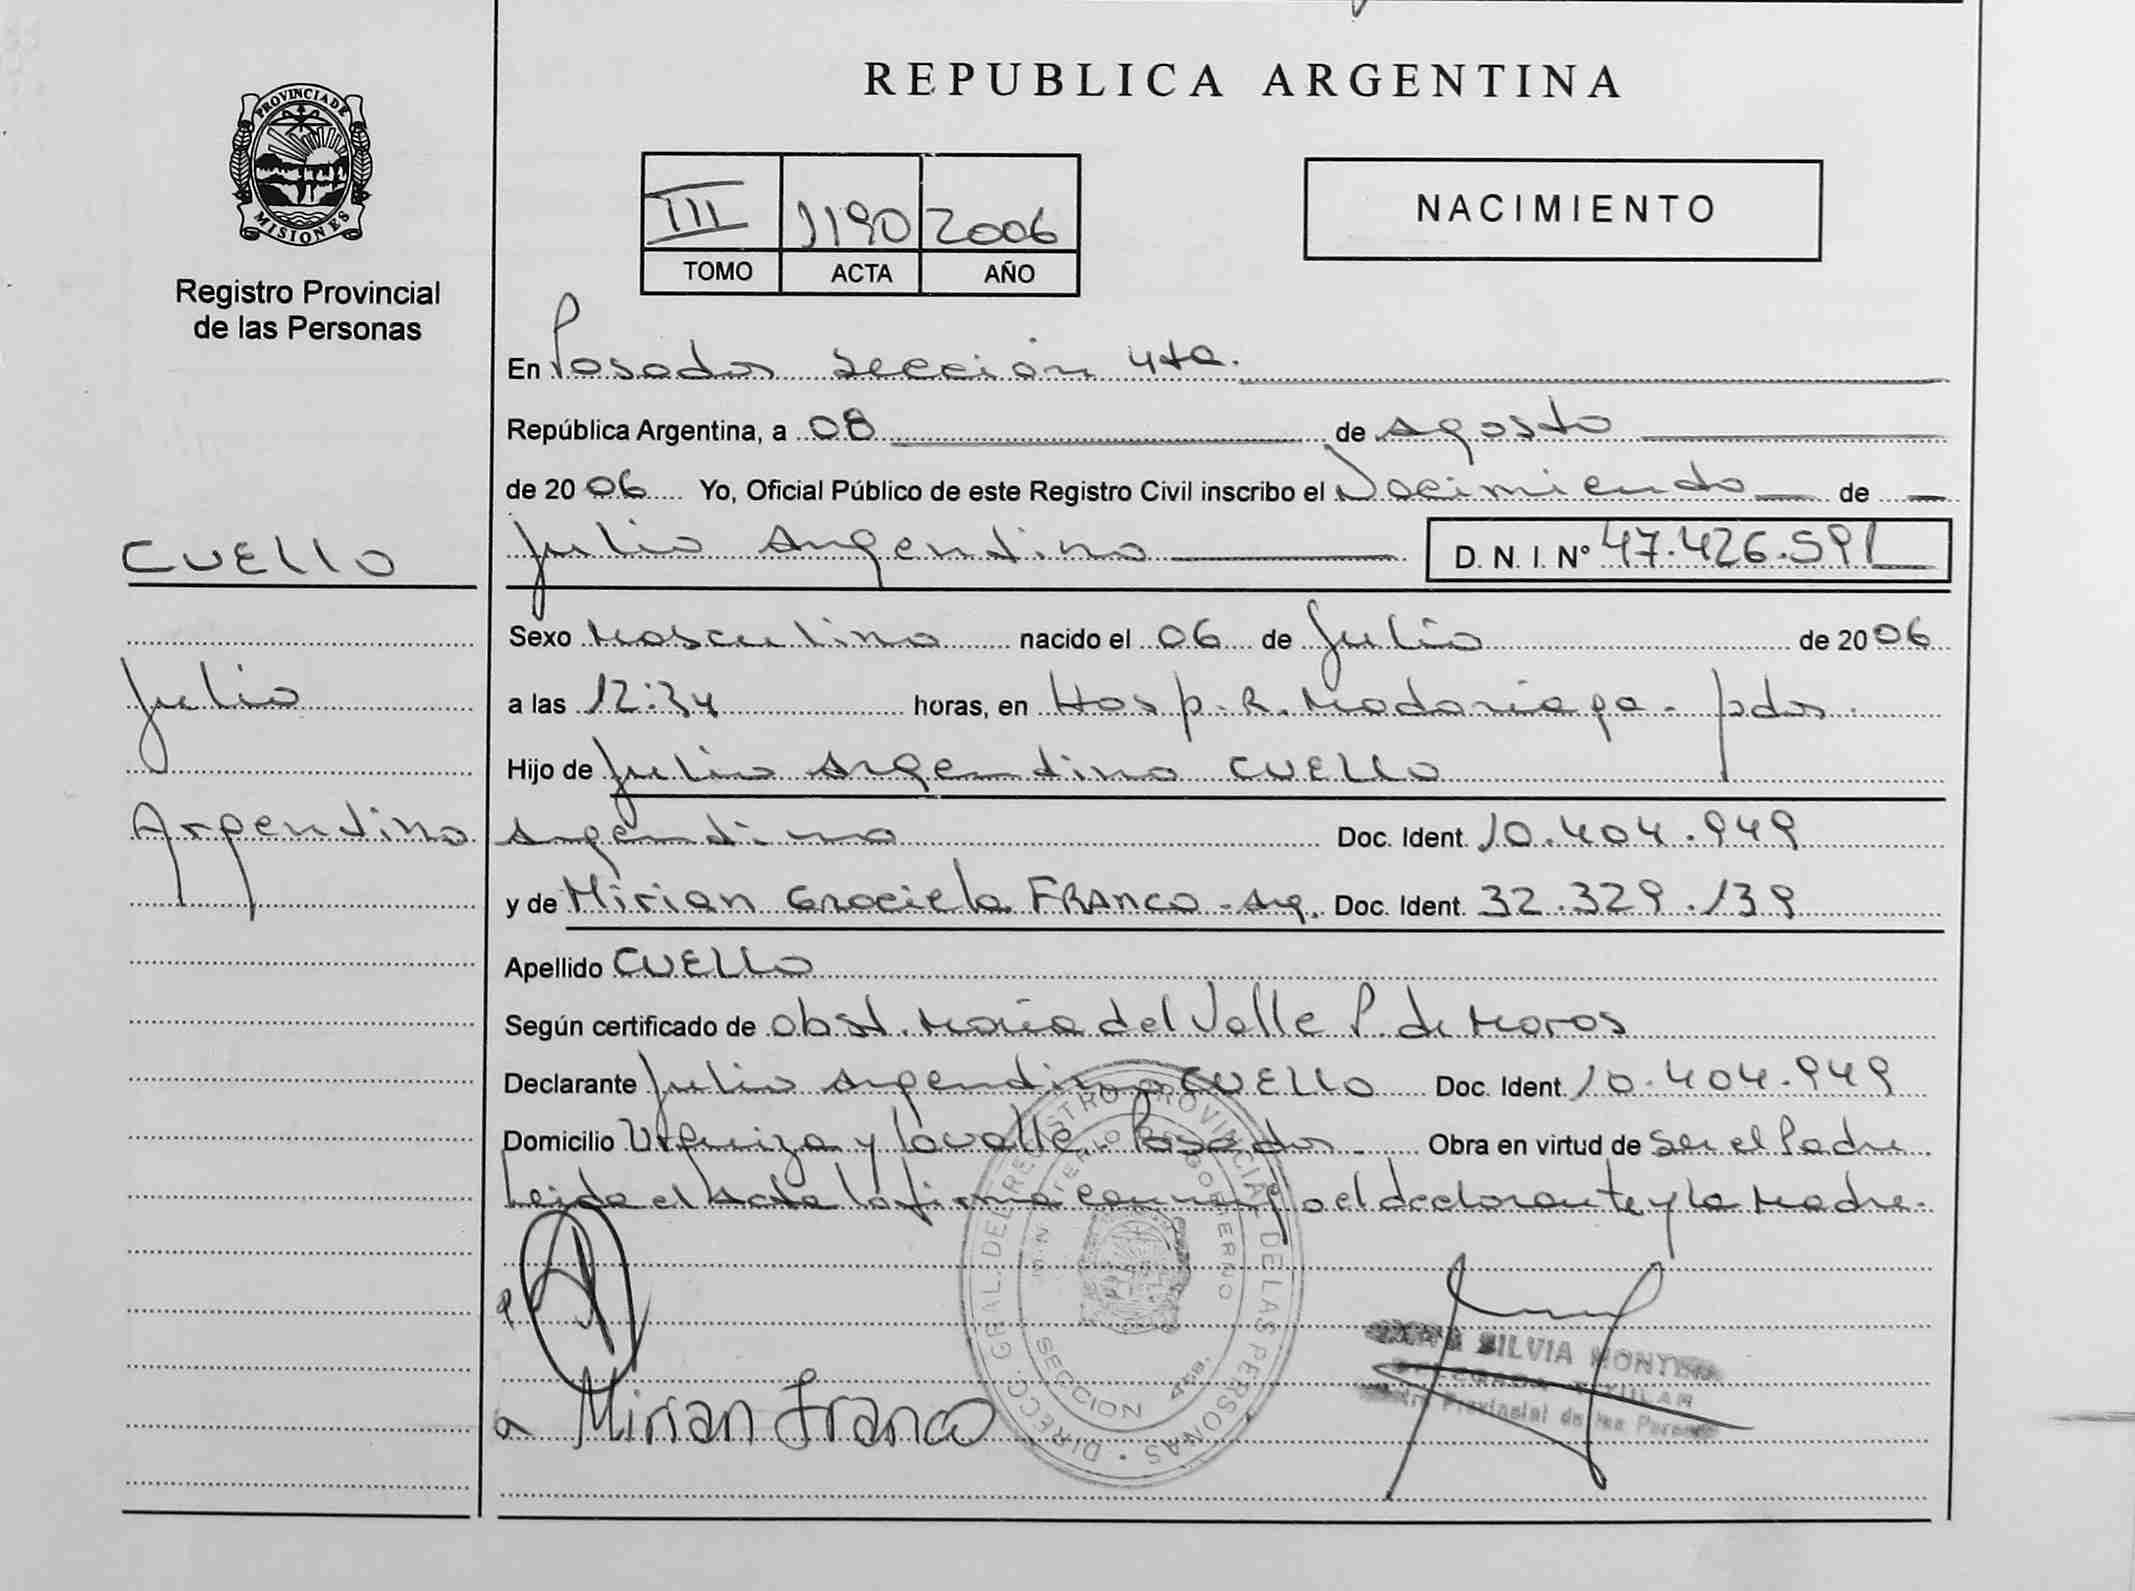 REPUBLICA ARGENTINA
PROVINCIA DE MISIONES
Registro Provincial
de las Personas
III 1190 2006
TOMO ACTA AÑO
NACIMIENTO
En Posadas sección 4ta.
República Argentina, a 08 de Agosto
de 2006 Yo, Oficial Público de este Registro Civil inscribo el Nacimiento de
CUELLO
Julio
Argentino
Julio Argentino D. N. I. Nº 47.426.591
Sexo Masculino nacido el 06 de Julio de 2006
a las 12:34 horas, en Hosp. R. Madariaga - pdas.
Hijo de Julio Argentino CUELLO
Argentino Doc. Ident. 10.404.949
y de Mirian Graciela FRANCO - Arg. Doc. Ident. 32.329.139
Apellido CUELLO
Según certificado de Obst. María del Valle P. de Moros
Declarante Julio Argentino CUELLO Doc. Ident. 10.404.949
Domicilio Urquiza y Lavalle. Posadas. Obra en virtud de Ser el Padre
Leida el Acta la firma conmigo el declarante y la Madre.
DIRECC. GRAL. DEL REGISTRO PROVINCIAL DE LAS PERSONAS
MINISTERIO DE GOBIERNO
SECCION 4ta.
Mirian Franco
SILVIA
TITULAR
Provincial de las